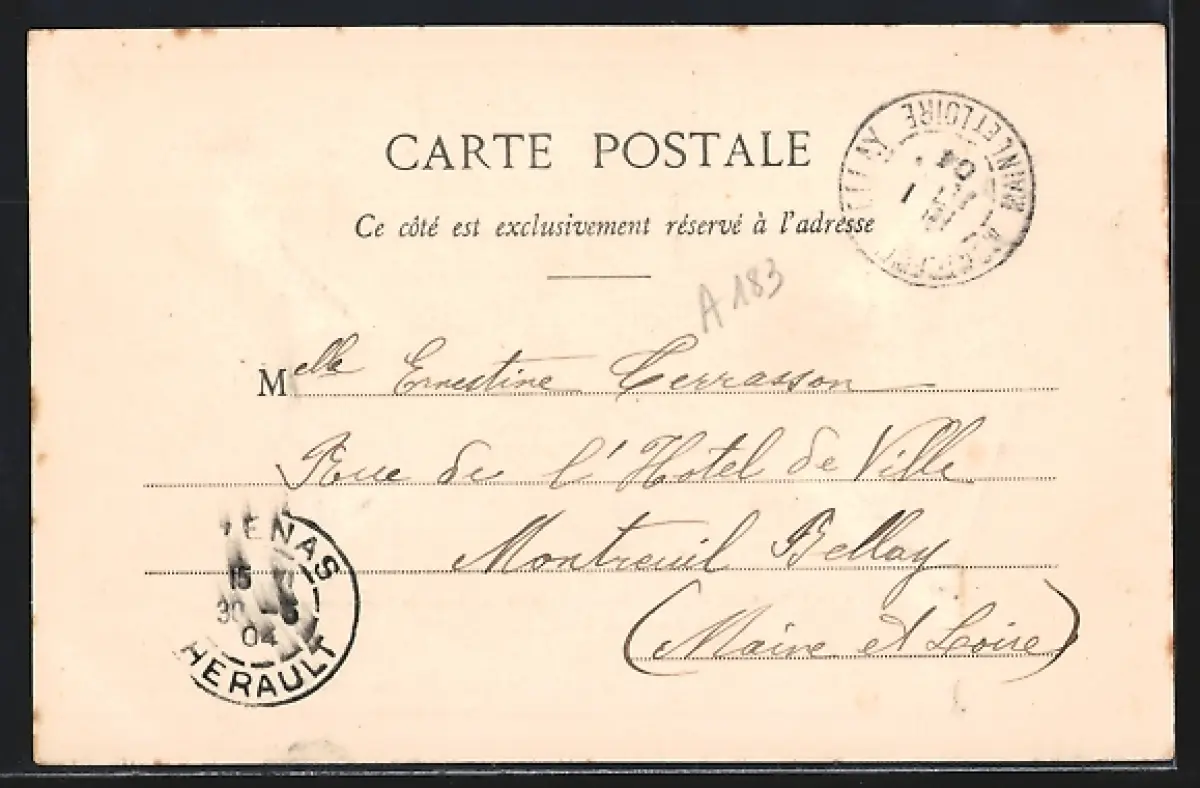 CARTE POSTALE
Ce côté est exclusivement réservé à l'adresse
A 183
Melle Ernestine Terrasson
Rue de l'Hotel de Ville
Montreuil Bellay
(Maine et Loire)
ET LOIRE
04
ENAS
15
30
04
HERAULT